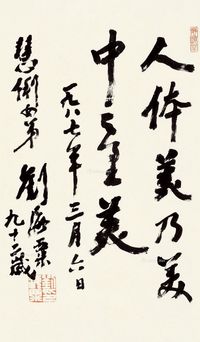 人体美乃美
中之至美
一九八七年三月六日
慧俐女弟
刘海粟
九十二岁